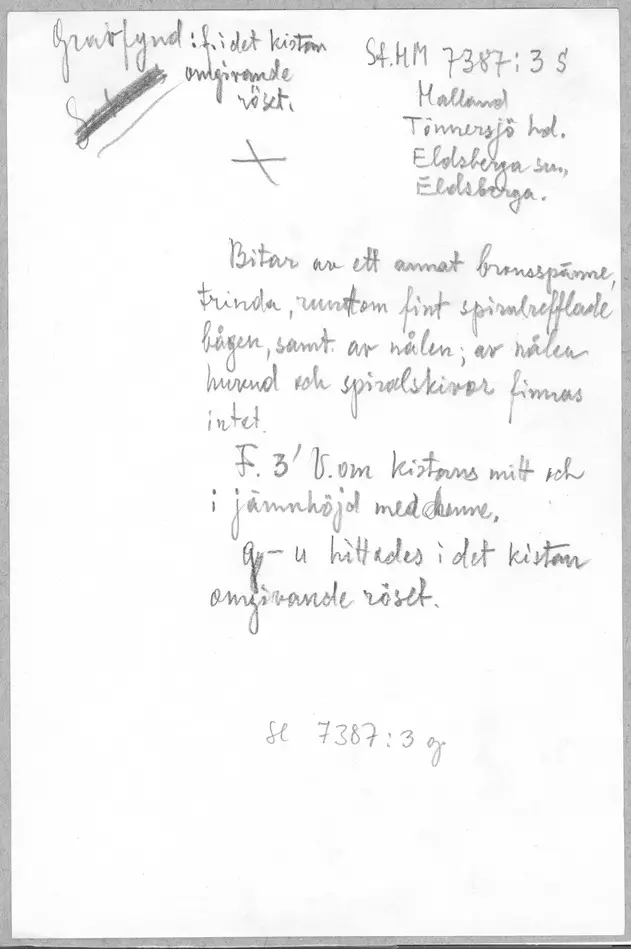 Gravfynd: f. i det kistan
omgivande
röset.
St.HM 7387:3 s
Halland
Tönnersjö hd.
Eldsberga sn.,
Eldsberga.
Bitar av ett annat bronsspänne,
trinda, runtom fint spiralrefflade
bågen, samt av nålen; av nålen
huvud och spiralskivor finnas
intet.
F. 3' V. om kistans mitt och
i jämnhöjd med denne.
q - u hittades i det kistan
omgivande röset.
se 7387:3 q.